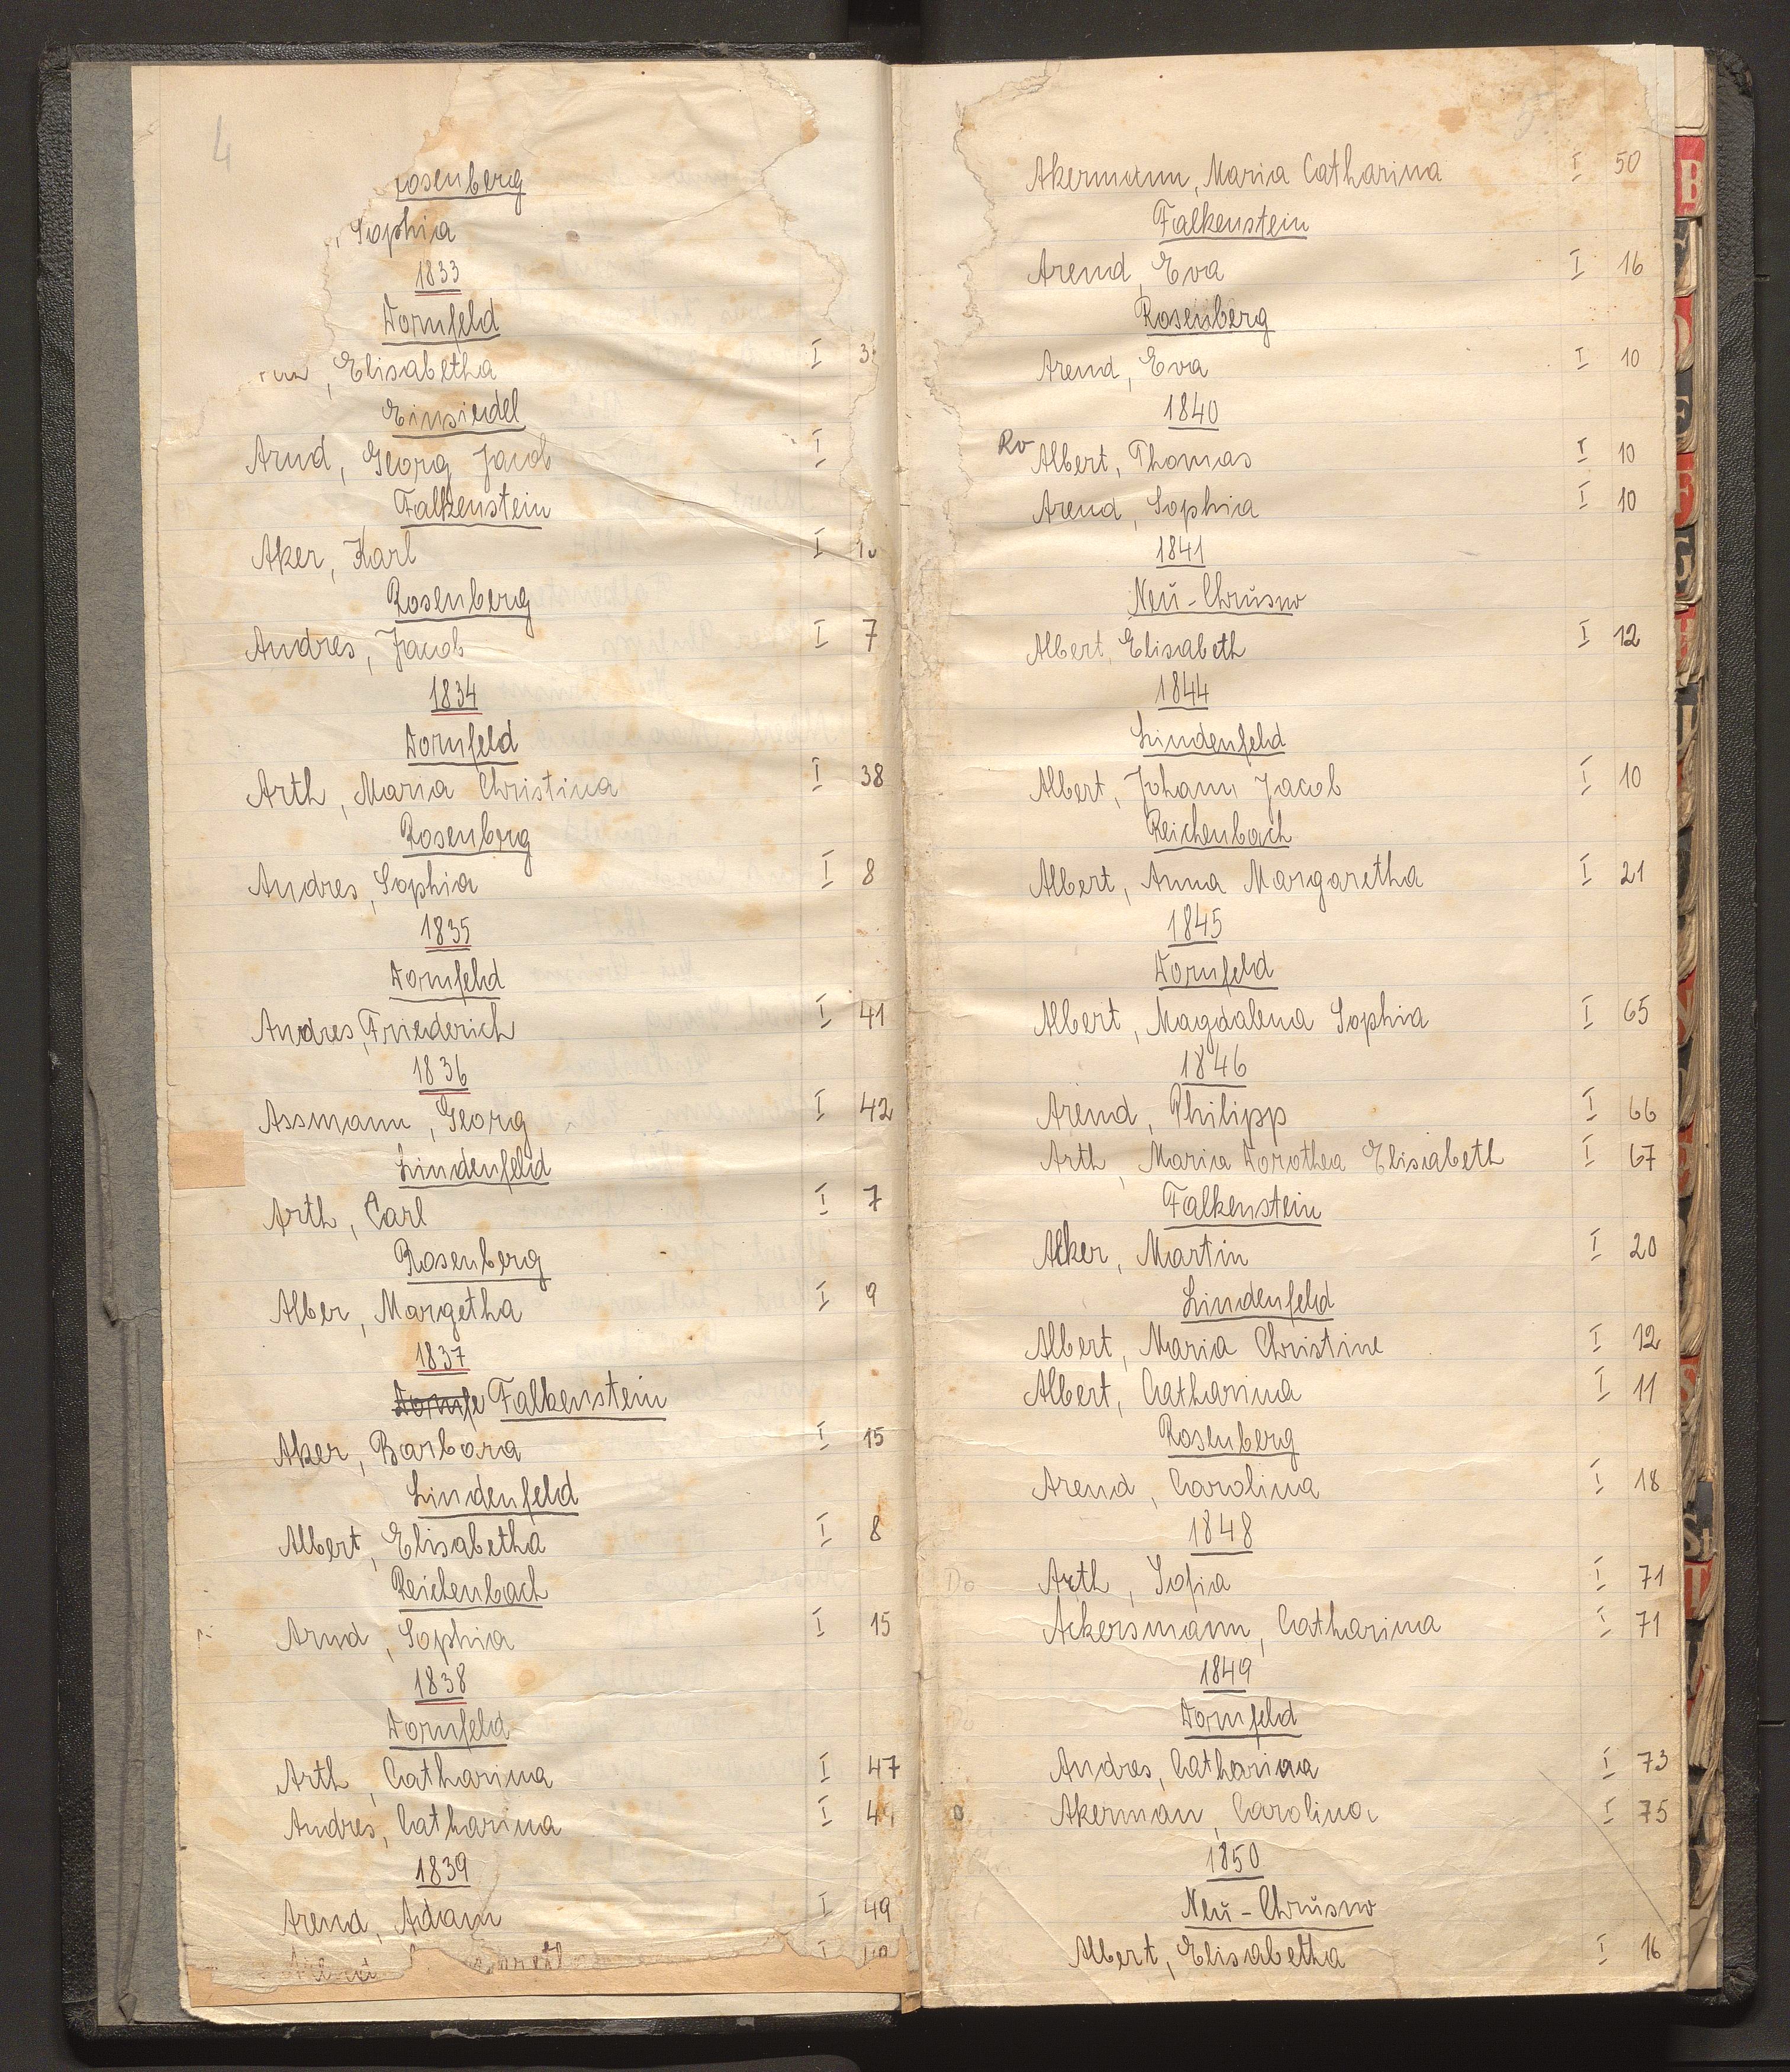 4
Rosenberg
, Sophia
1833
Dornfeld
, Elisabetha I 3
Einsiedel
Arnd, Georg Jacob I
Falkenstein
Aker, Karl I
Rosenberg
Andres, Jacob I 7
1834
Dornfeld
Arth, Maria Christina I 38
Rosenberg
Andres, Sophia I 8
1835
Dornfeld
Andres, Friederich I 41
1836
Assmann, Georg I 42
Lindenfeld
Arth, Carl I 7
Rosenberg
Alber, Margetha I 9
1837
Dornfe Falkenstein
Aker, Barbara I 15
Lindenfeld
Albert, Elisabetha I 8
Reichenbach
Arnd, Sophia I 15
1838
Dornfeld
Arth, Catharina I 47
Andres, Catharina I 4
1839
Arend, Adam I 49
I
Akermann, Maria Catharina I 50
Falkenstein
Arend, Eva I 16
Rosenberg
Arend, Eva I 10
1840
Ro Albert, Thomas I 10
Arend, Sophia I 10
1841
Neŭ-Chrŭsno
Albert, Elisabeth I 12
1844
Lindenfeld
Albert, Johann Jacob I 10
Reichenbach
Albert, Anna Margaretha I 21
1845
Dornfeld
Albert, Magdalena Sophia I 65
1846
Arend, Philipp I 66
Arth, Maria Dorothea Elisabeth I 67
Falkenstein
Aker, Martin I 20
Lindenfeld
Albert, Maria Christine I 12
Albert, Catharina I 11
Rosenberg
Arend, Carolina I 18
1848
Do Arth, Sofia I 71
Ackersmann, Catharina I 71
1849
Dornfeld
Andres, Catharina I 73
Akerman, Carolina I 75
1850
Neŭ-Chrŭsno
Albert, Elisabetha I 16
B
St